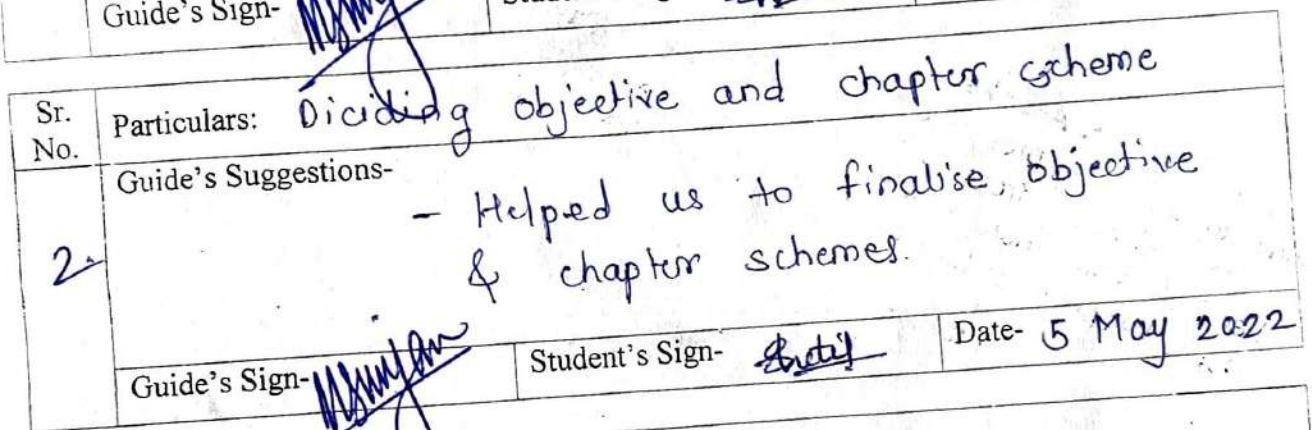 Guide's Sign-
Sr. No. Particulars: Diciding objective and chapter scheme
Guide's Suggestions-
- Helped us to finalise, objective
2. & chapter schemes.
Guide's Sign- Student's Sign- Date- 5 May 2022